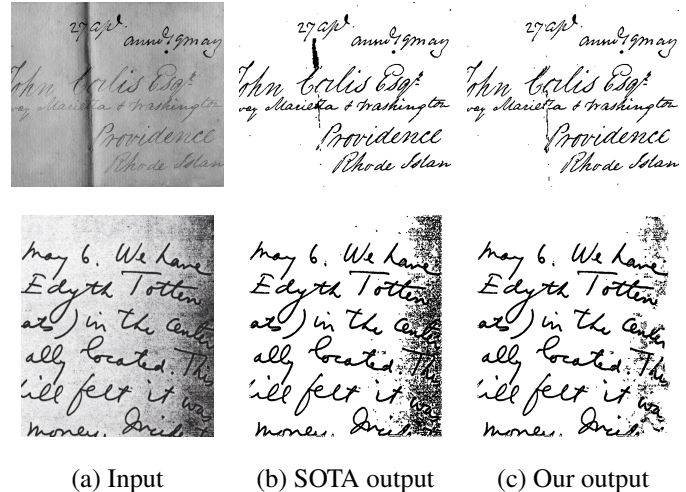 27 apl.
may
John Corlis Esqr.
vey Marietta & Washington
Providence
Rhode Islan
27 apl.
may
John Corlis Esqr.
vey Marietta & Washington
Providence
Rhode Islan
27 apl.
may
John Corlis Esqr.
vey Marietta & Washington
Providence
Rhode Islan
may 6. We have
Edyth Totten
ats) in the center
ally located. This
ill felt it was
money.
may 6. We have
Edyth Totten
ats) in the center
ally located. This
ill felt it was
money.
may 6. We have
Edyth Totten
ats) in the center
ally located. This
ill felt it was
money.
(a) Input
(b) SOTA output
(c) Our output